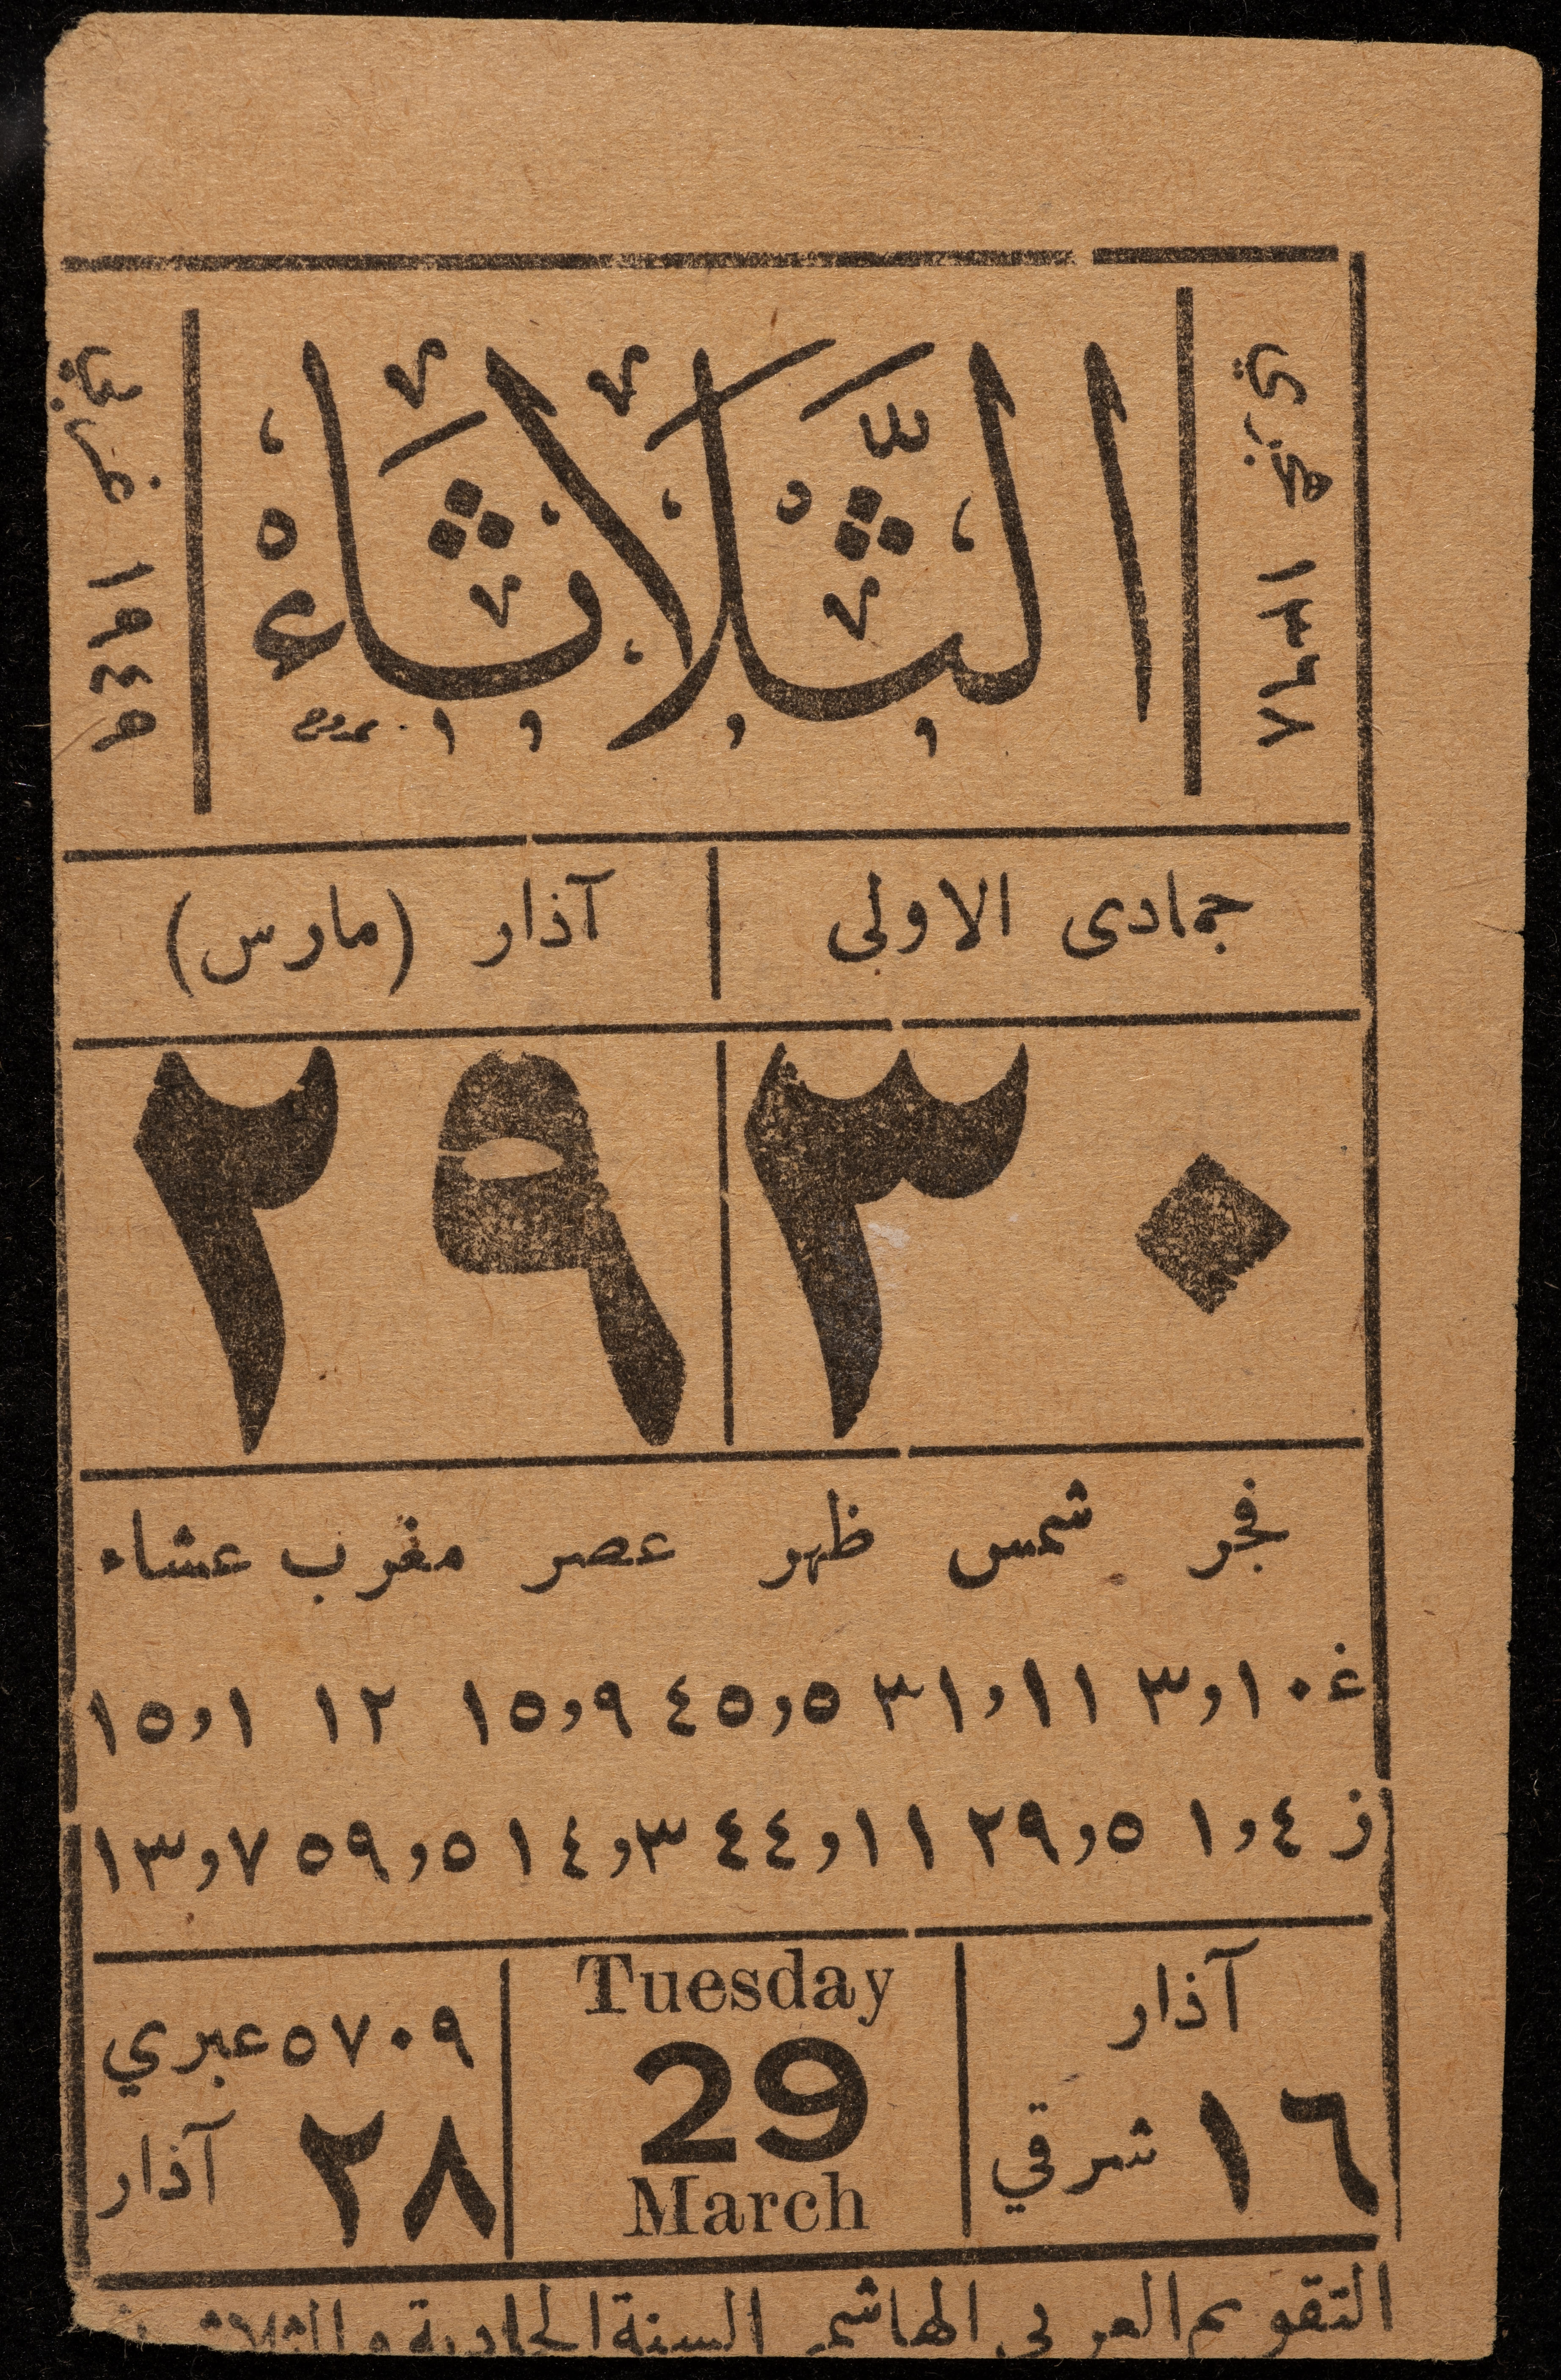 ١٣٦٨ هجري
الثَّلَاثَاءُ
١٩٤٩ غربي
جمادى الاولى
آذار (مارس)
٣٠
٢٩
فجر شمس ظهر عصر مغرب عشاء
غ ١٠و٣ ١١و٣١ ٥و٤٥ ٩و١٥ ١٢ ١و١٥
ز ٤و١ ٥و٢٩ ١١و٤٤ ٣و١٤ ٥و٥٩ ٧و١٣
آذار
١٦ شرقي
Tuesday
29
March
٥٧٠٩ عبري
٢٨ آذار
التقويم العربي الهاشمي السنة الحادية